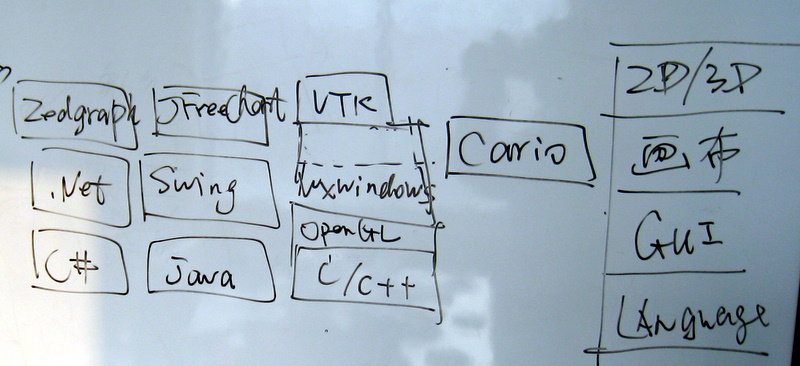 Zedgraph JFreeChart VTK 2D/3D
Cario 画布
.Net Swing wxwindows
OpenGL GUI
C# Java C/C++
LAnguage